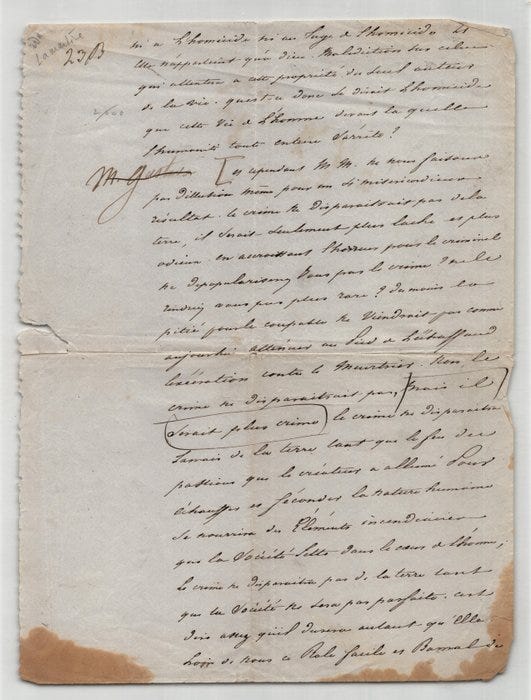 Lamartine
23B
ni à l'homicide ni au juge de l'homicide Et
Elle n'appartient qu'à dieu. Malédiction sur celui
qui attentera à cette propriété du seul auteur
de la vie. qu'est ce donc se dirait l'homicide
que cette Vie de l'homme devant la quelle
l'humanité tout entière s'arrête?
Et cependant M M. ne nous faisons
pas d'illusion même pour un si miséricordieux
résultat. le crime ne disparaitrait pas de la
terre, il serait seulement plus lache et plus
odieux en accroissant l'horreur pour le criminel
ne dépopulariserez Vous pas le crime? ne le
rendriez vous pas plus rare? du moins la
pitié pour le coupable ne Viendrait pas comme
aujourd'hui atténuer au Pied de l'échaffaud
l'exécration contre le Meurtrier. Non, le
crime ne disparaitrait pas, mais il
serait plus crime le crime ne disparaitra
Jamais de la terre tant que le feu des
passions que le créateur a allumé Pour
échauffer et féconder la nature humaine
se nourrira des Éléments incendiaires
que la Société Jette dans le cœur de l'homme;
le crime ne disparaitra pas de la terre tant
que la Société ne sera pas parfaite. c'est
dire assez qu'il durera autant qu'elle
Loin de nous ce Role facile et Bannal de